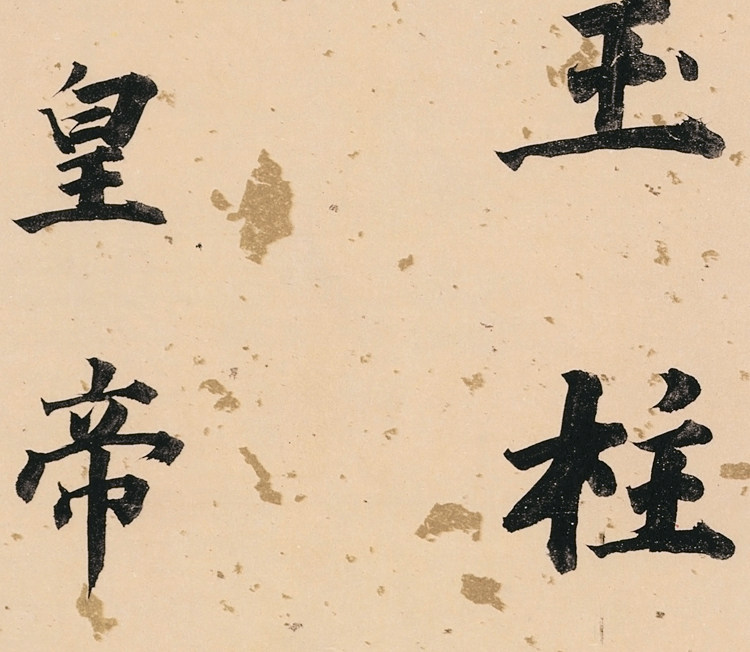 玉柱
皇帝